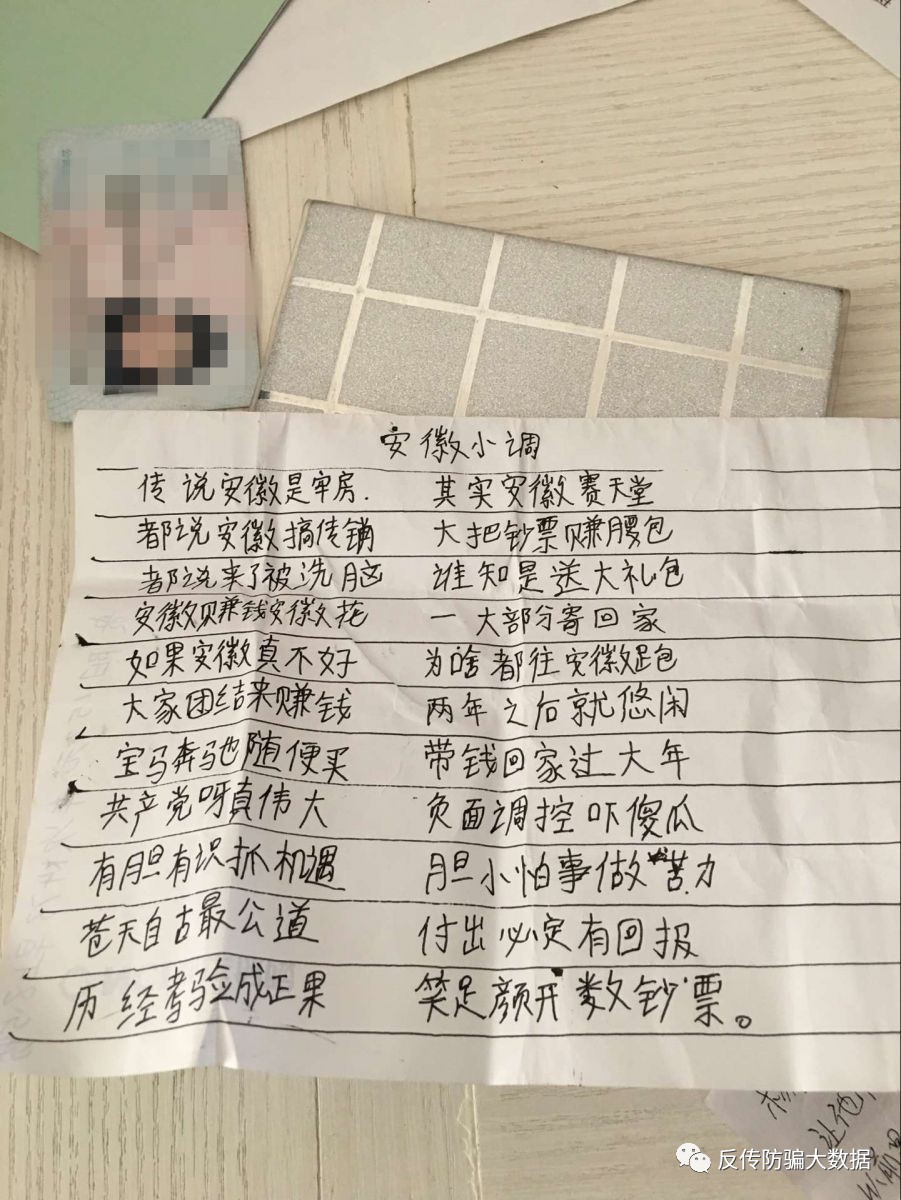 安徽小调
传说安徽是牢房. 其实安徽赛天堂
都说安徽搞传销 大把钞票赚腰包
都说来了被洗脑 谁知是送大礼包
安徽赚钱安徽花 一大部分寄回家
如果安徽真不好 为啥都往安徽跑
大家团结来赚钱 两年之后就悠闲
宝马奔驰随便买 带钱回家过大年
共产党呀真伟大 负面调控吓傻瓜
有胆有识抓机遇 胆小怕事做苦力
苍天自古最公道 付出必定有回报
历经考验成正果 笑足颜开数钞票。
反传防骗大数据